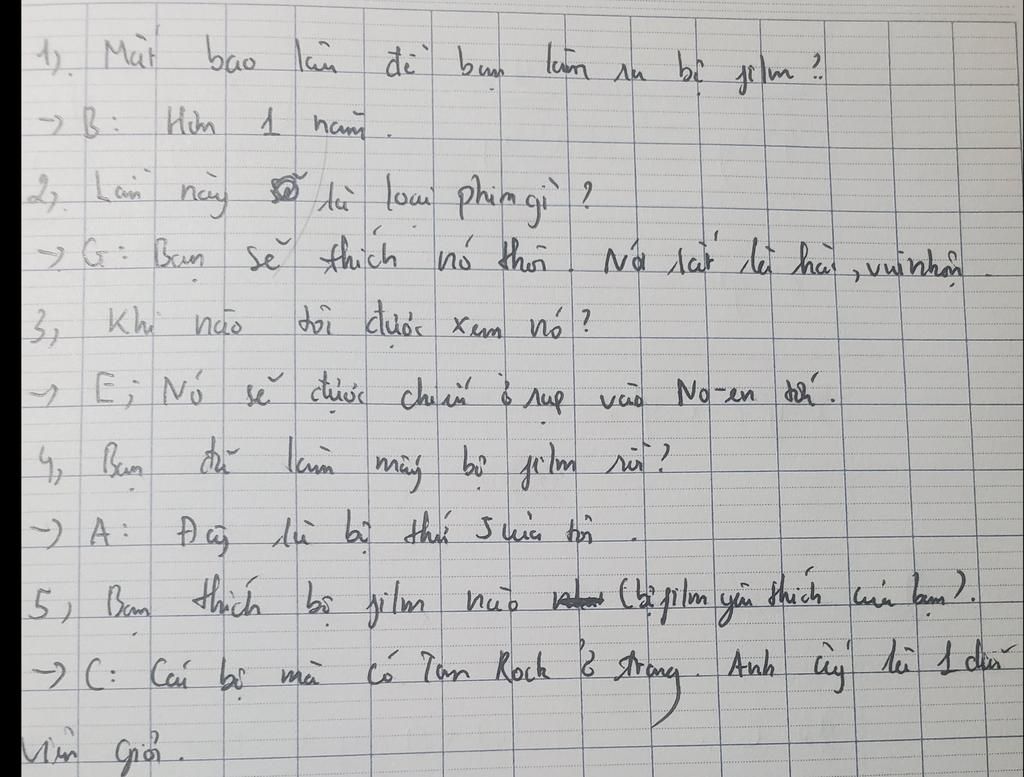 1). Mất bao lâu để bạn làm ra bộ film?
→ B: Hơn 1 năm.
2). Lần này là loại phim gì?
→ G: Bạn sẽ thích nó thôi. Nó rất là hài, vui nhộn.
3, Khi nào tôi được xem nó?
→ E; Nó sẽ được chiếu ở rạp vào No-en tới.
4, Bạn đã làm mấy bộ film rồi?
→ A: Đây là bộ thứ 5 của tôi.
5, Bạn thích bộ film nào (bộ film yêu thích của bạn).
→ C: Cái bộ mà có Tan Rock ở trong. Anh ấy là 1 diễn
viên giỏi.